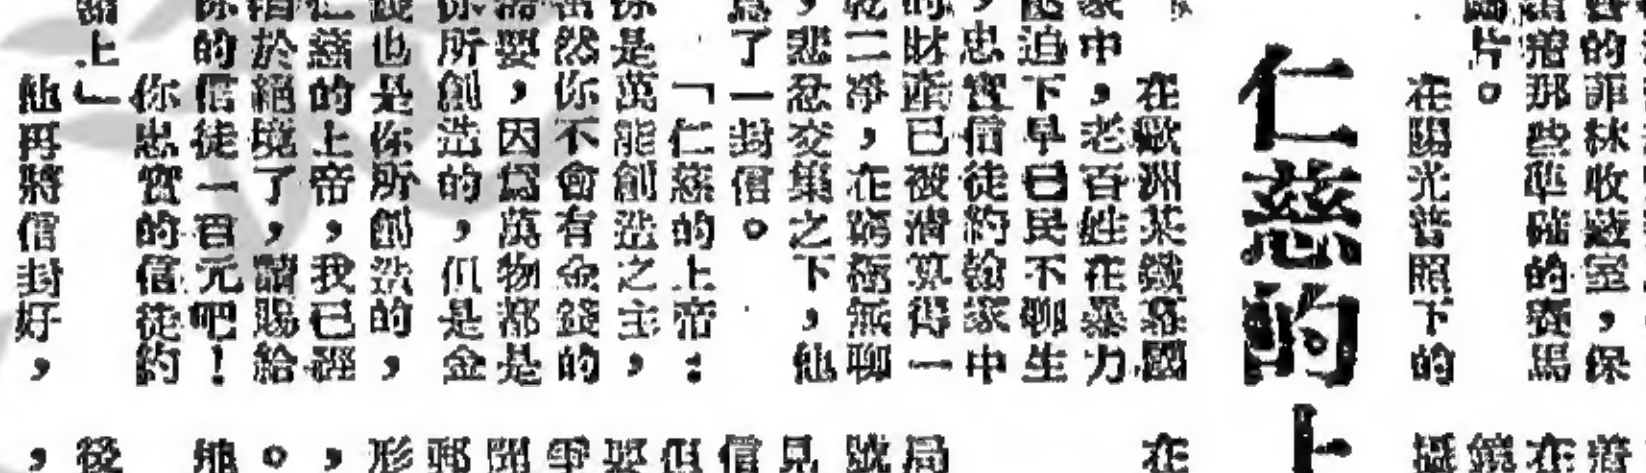 的菲林收藏室，保
着那些準確的賽馬
圖片。
在陽光普照下的
仁慈的上
在歐洲某鐵幕國
家中，老百姓在暴力
壓迫下早已民不聊生
，忠實信徒約翰家中
的財產已被清算得一
乾二淨，在窮極無聊
，悲忿交集之下，他
寫了一封信。
「仁慈的上帝：
你是萬能創造之主，
當然你不會有金錢的
需要，因爲萬物都是
你所創造的，但是金
錢也是你所創造的，
仁慈的上帝，我已經
陷於絕境了，請賜給
你的信徒一百元吧！
你忠實的信徒約
翰上」
他再將信封好，
在
在
局
號
見
信
但
要
郵
形
，
。
後
，